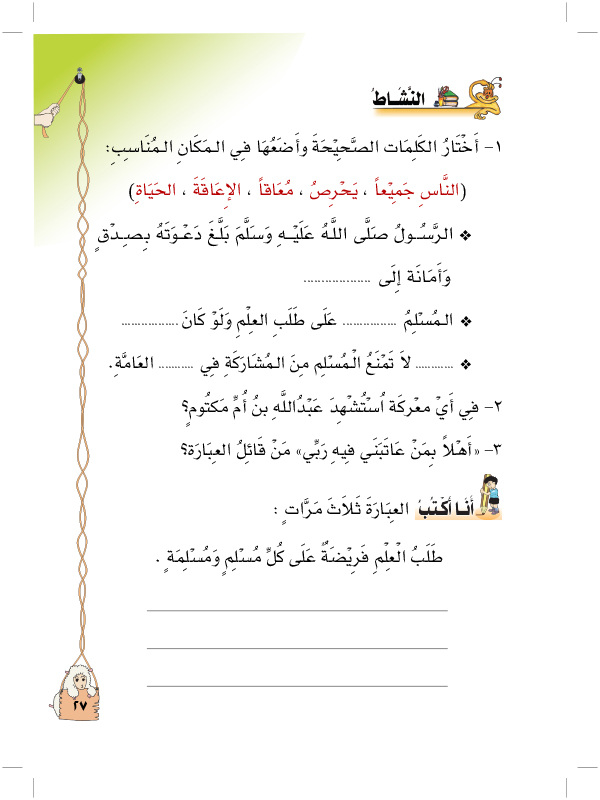 النَّشَاطُ
١- أَخْتَارُ الكَلِمَات الصَّحِيْحَةَ وأَضَعُهَا فِي الـمَكَانِ الـمُنَاسِبِ:
(النَّاسِ جَمِيْعاً ، يَحْرِصُ ، مُعَاقاً ، الإِعَاقَةَ ، الحَيَاةِ)
❖ الرَّسُـولُ صَلَّى اللَّـهُ عَلَيْـهِ وَسَلَّمَ بَلَّغَ دَعْـوَتَهُ بِصِـدْقٍ
وَأَمَانَة إِلَى ...................
❖ الـمُسْلِمُ ............... عَلَى طَلَبِ العِلْمِ وَلَوْ كَانَ................
❖ ........... لاَ تَمْنَعُ الْمُسْلِم مِنَ الـمُشَارَكَةِ فِي .......... العَامَّةِ.
٢- فِي أَيْ معْركَة اُسْتُشْهِدَ عَبْدُاللَّهِ بنُ أُمِّ مَكتُومٍ؟
٣- «أَهْلاً بِمَنْ عَاتَبَنَي فِيهِ رَبِّي» مَنْ قَائِلُ العِبَارَة؟
أَنَا أَكْتُبُ العِبَارَةَ ثَلاَثَ مَرَّاتٍ :
طَلَبُ الْعِلْمِ فَرِيْضَةٌ عَلَى كُلِّ مُسْلِمٍ وَمُسْلِمَةٍ .
٢٧